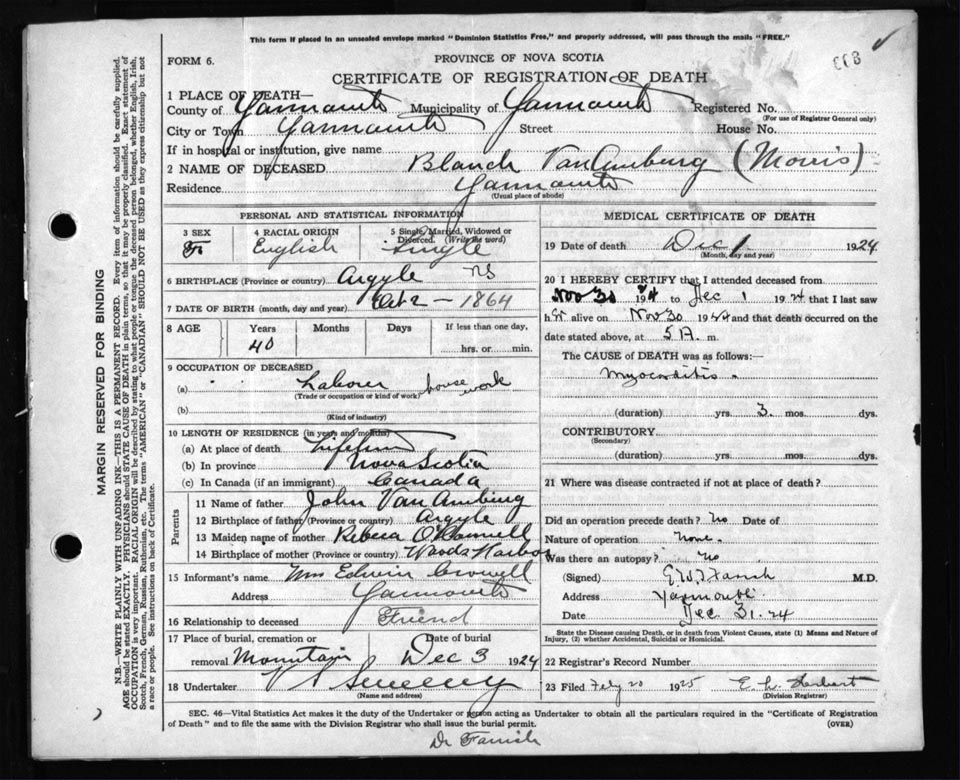 This form if placed in an unsealed envelope marked "Dominion Statistics Free," and properly addressed, will pass through the mails "FREE."
FORM 6.
PROVINCE OF NOVA SCOTIA
CERTIFICATE OF REGISTRATION OF DEATH
1 PLACE OF DEATH—
County of Yarmouth Municipality of Yarmouth Registered No.
(For use of Registrar General only)
City or Town Yarmouth Street House No.
If in hospital or institution, give name
2 NAME OF DECEASED Blanch VanAmburg (Morris)
Residence Yarmouth
(Usual place of abode)
PERSONAL AND STATISTICAL INFORMATION
3 SEX F
4 RACIAL ORIGIN English
5 Single, Married, Widowed or Divorced. (Write the word) Single
6 BIRTHPLACE (Province or country) Argyle NS
7 DATE OF BIRTH (month, day and year) Oct 2 - 1864
8 AGE Years Months Days If less than one day,
40 hrs. or min.
9 OCCUPATION OF DECEASED
(a) Labour house work
(Trade or occupation or kind of work)
(b)
(Kind of industry)
10 LENGTH OF RESIDENCE (in years and months)
(a) At place of death Lifetime
(b) In province Nova Scotia
(c) In Canada (if an immigrant) Canada
Parents
11 Name of father John Van Amburg
12 Birthplace of father (Province or country) Argyle
13 Maiden name of mother Rebeca O'Connell
14 Birthplace of mother (Province or country) Woods Harbor
15 Informant's name Mrs Edwin Crowell
Address Yarmouth
16 Relationship to deceased Friend
17 Place of burial, cremation or removal Mountain Date of burial Dec 3 1924
18 Undertaker V S Sweeny
(Name and address)
MEDICAL CERTIFICATE OF DEATH
19 Date of death Dec 1 1924
(Month, day and year)
20 I HEREBY CERTIFY that I attended deceased from
Nov 30 1924 to Dec 1 1924 that I last saw
h er alive on Nov 30 1924 and that death occurred on the
date stated above, at 5 A. m.
The CAUSE of DEATH was as follows:
Myocarditis.
(duration) yrs. 3 mos. dys.
CONTRIBUTORY
(Secondary)
(duration) yrs. mos. dys.
21 Where was disease contracted if not at place of death?
Did an operation precede death? No Date of
Nature of operation None.
Was there an autopsy? No
(Signed) Farish M.D.
Address Yarmouth
Date Dec 31. 24
State the Disease causing Death, or in death from Violent Causes, state (1) Means and Nature of
Injury, (2) whether Accidental, Suicidal or Homicidal.
22 Registrar's Record Number
23 Filed 20 1925 E. Herbert
(Division Registrar)
SEC. 46—Vital Statistics Act makes it the duty of the Undertaker or person acting as Undertaker to obtain all the particulars required in the "Certificate of Registration
of Death" and to file the same with the Division Registrar who shall issue the burial permit. (OVER)
Dr Farish
MARGIN RESERVED FOR BINDING
N.B.—WRITE PLAINLY WITH UNFADING INK—THIS IS A PERMANENT RECORD. Every item of information should be carefully supplied.
AGE should be stated EXACTLY. PHYSICIANS should STATE CAUSE OF DEATH in plain terms, so that it may be properly classified. Exact statement of
OCCUPATION is very important. RACIAL ORIGIN will be described by stating to what people or tongue the deceased person belonged, whether English, Irish,
Scotch, French, German, Russian, Ruthenian, etc. The terms "AMERICAN" or "CANADIAN" SHOULD NOT BE USED as they express citizenship but not
a race or people. See instructions on back of Certificate.